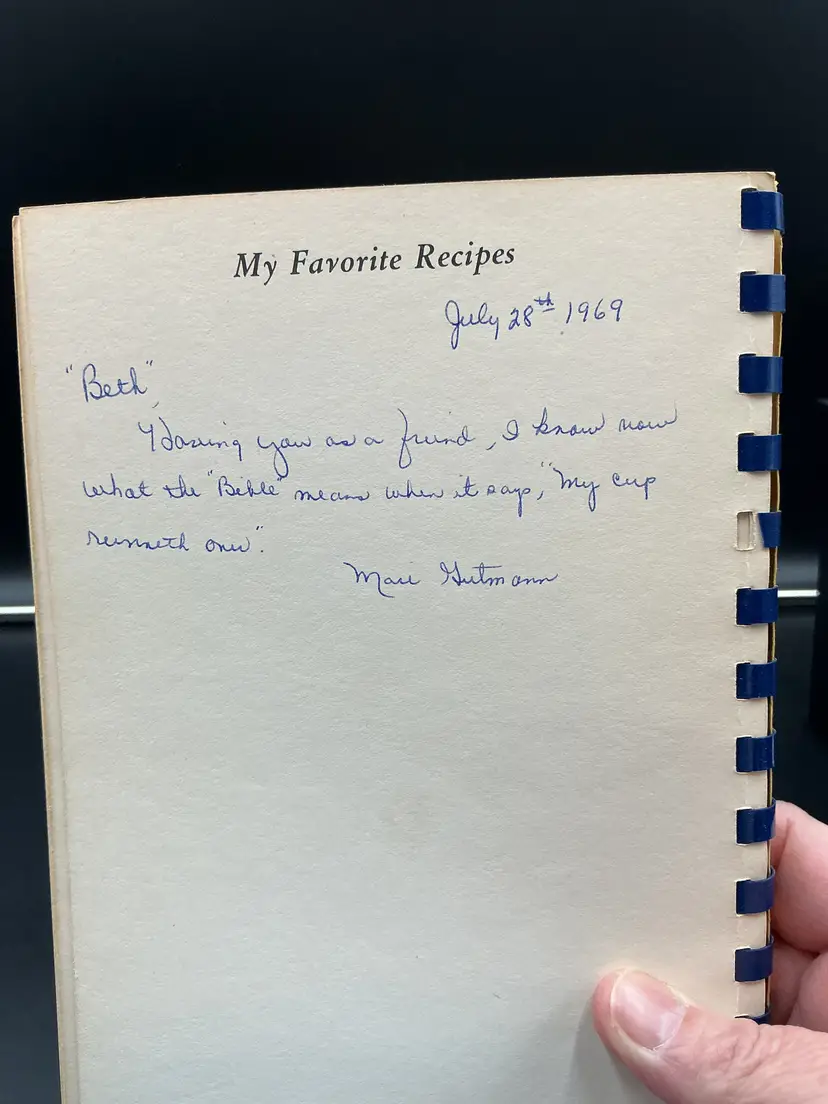 My Favorite Recipes
July 28th 1969
"Beth",
Having you as a friend, I know now
what the "Bible" means when it says, "My cup
runneth over".
Mari Gutmann